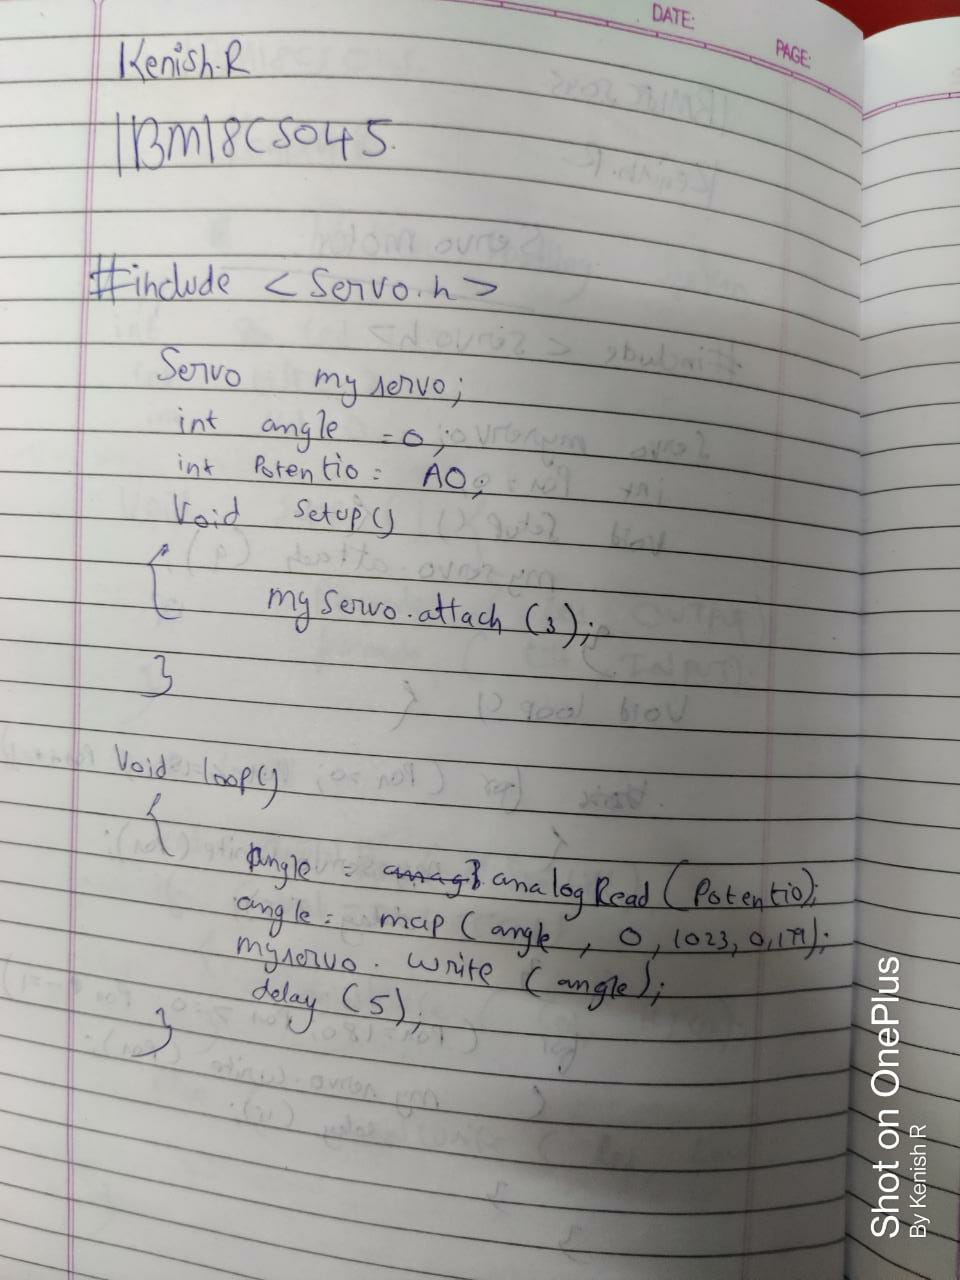 DATE:
PAGE:
Kenish.R
1BM18CS045.
#include <Servo.h>
Servo myservo;
int angle =0;
int Potentio = A0;
Void Setup()
{
myservo.attach (3);
}
Void loop()
{
Angle = analogRead (Potentio);
angle = map (angle, 0, 1023, 0, 179);
myservo. write (angle);
delay (5);
}
Shot on OnePlus
By Kenish R